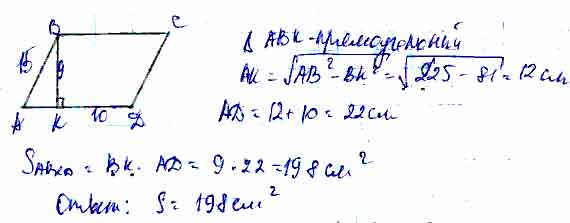 B C
15 9
A K 10 D
Δ ABK - прямоугольний
AK = √AB² - BK² = √225 - 81 = 12 см
AD = 12 + 10 = 22 см
SABCD = BK · AD = 9 · 22 = 198 см²
Ответ: S = 198 см²